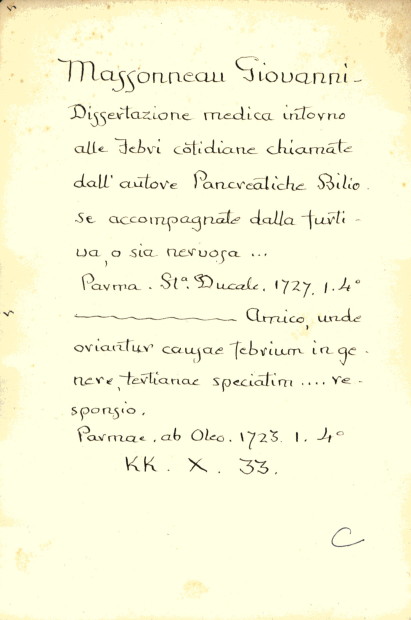 Massonneau Giovanni -
Dissertazione medica intorno
alle Febri cotidiane chiamate
dall' autore Pancreatiche Bilio.
se accompagnate dalla furti -
va, o sia nervosa ...
Parma. Stª. Ducale. 1727. 1. 4°
Amico, unde
oriantur causae febrium in ge.
nere, tertianae speciatim .... re-
sponsio.
Parmae. ab Oleo. 1723. 1. 4°
KK. X. 33.
C